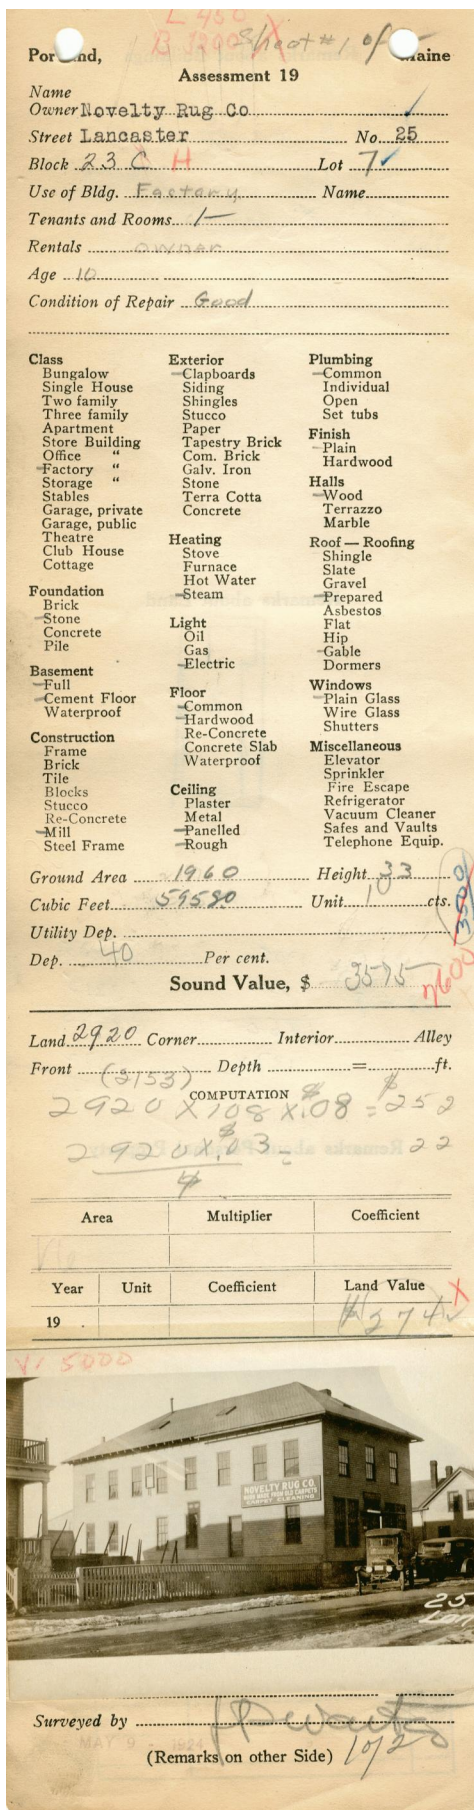 L 450
B 3200 X Sheet #1 of
Portland, Maine
Assessment 19
Name
Owner Novelty Rug Co
Street Lancaster No. 25
Block 23 C H Lot 7
Use of Bldg. Factory Name
Tenants and Rooms 1-
Rentals owner
Age 10
Condition of Repair Good
Class
Bungalow
Single House
Two family
Three family
Apartment
Store Building
Office "
Factory "
Storage "
Stables
Garage, private
Garage, public
Theatre
Club House
Cottage
Foundation
Brick
Stone
Concrete
Pile
Basement
Full
Cement Floor
Waterproof
Construction
Frame
Brick
Tile
Blocks
Stucco
Re-Concrete
Mill
Steel Frame
Exterior
Clapboards
Siding
Shingles
Stucco
Paper
Tapestry Brick
Com. Brick
Galv. Iron
Stone
Terra Cotta
Concrete
Heating
Stove
Furnace
Hot Water
Steam
Light
Oil
Gas
Electric
Floor
Common
Hardwood
Re-Concrete
Concrete Slab
Waterproof
Ceiling
Plaster
Metal
Panelled
Rough
Plumbing
Common
Individual
Open
Set tubs
Finish
Plain
Hardwood
Halls
Wood
Terrazzo
Marble
Roof — Roofing
Shingle
Slate
Gravel
Prepared
Asbestos
Flat
Hip
Gable
Dormers
Windows
Plain Glass
Wire Glass
Shutters
Miscellaneous
Elevator
Sprinkler
Fire Escape
Refrigerator
Vacuum Cleaner
Safes and Vaults
Telephone Equip.
Ground Area 1960 Height 33
Cubic Feet 59580 Unit 10 cts.
Utility Dep.
Dep. 40 Per cent.
Sound Value, $ 3575
Land 2920 Corner Interior Alley
Front Depth = ft.
(2153)
COMPUTATION
2920 X 108 X $.08 = $252
2920 X $.03 = 22
4
Area Multiplier Coefficient
Year Unit Coefficient Land Value X
19 $274
5000
NOVELTY RUG CO.
RUGS MADE FROM OLD CARPETS
CARPET CLEANING
25
Surveyed by
MAY 9 - 1924
(Remarks on other Side)